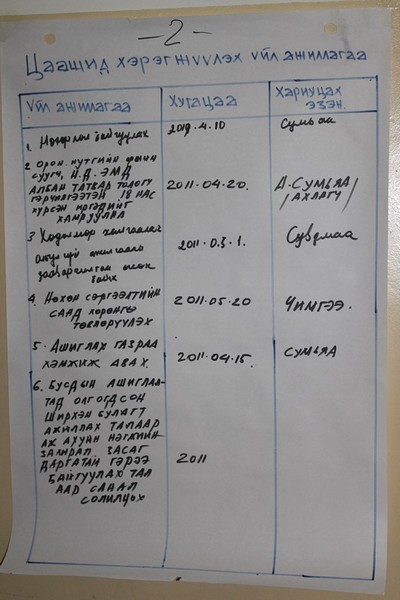 — 2 —
Цаашид хэрэгжүүлэх үйл ажиллагаа
Үйл ажиллагаа
Хугацаа
Хариуцах
эзэн.
1.
4.10
Сумъяа
2 Орон нутгийн
суугч, Н.Д. ЭМД
албан татвар төлөгч
гэрчилгээтэй 18 нас
хүрсэн иргэдийг
хамруулаа
2011.04.20.
Д. Сумъяа
/ахлагч/
3 Хөдөлмөр
2011.05.1.
Сувдмаа
4. Нөхөн сэргээлтийн
саад хөрөнгө
төвлөрүүлэх
2011.05.20
Чимгээ.
5. Ашиглах газраа
хэмжиж авах.
2011.04.15.
Сумъяа
6. Бусдын ашиглал-
тад олгогдсон
Ширхэн булагт
ажиллах талаар
аж ахуйн нэгжийн
захирал засаг
даргатай гэрээ
байгуулах тал
аар санал
солилцох
2011